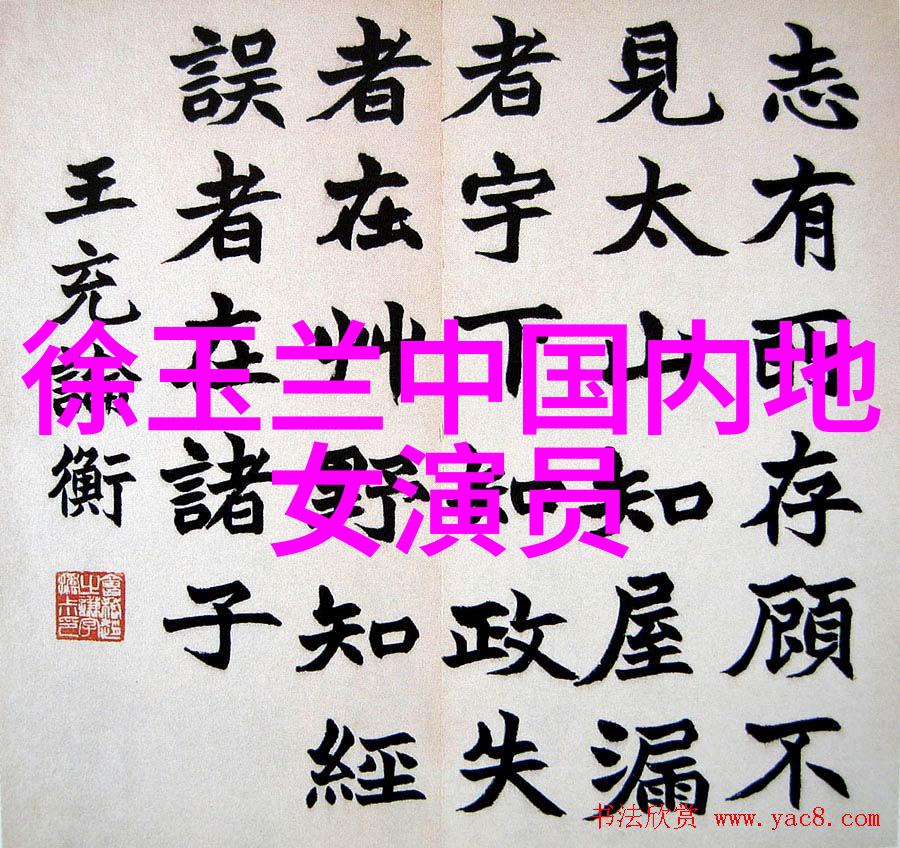 志有所存顧不
見太山知屋漏
者宇下知政失
者在艸野知經
誤者在諸子
王充論衡
徐玉兰中国内地
女演员
书法欣赏 www.yac8.com